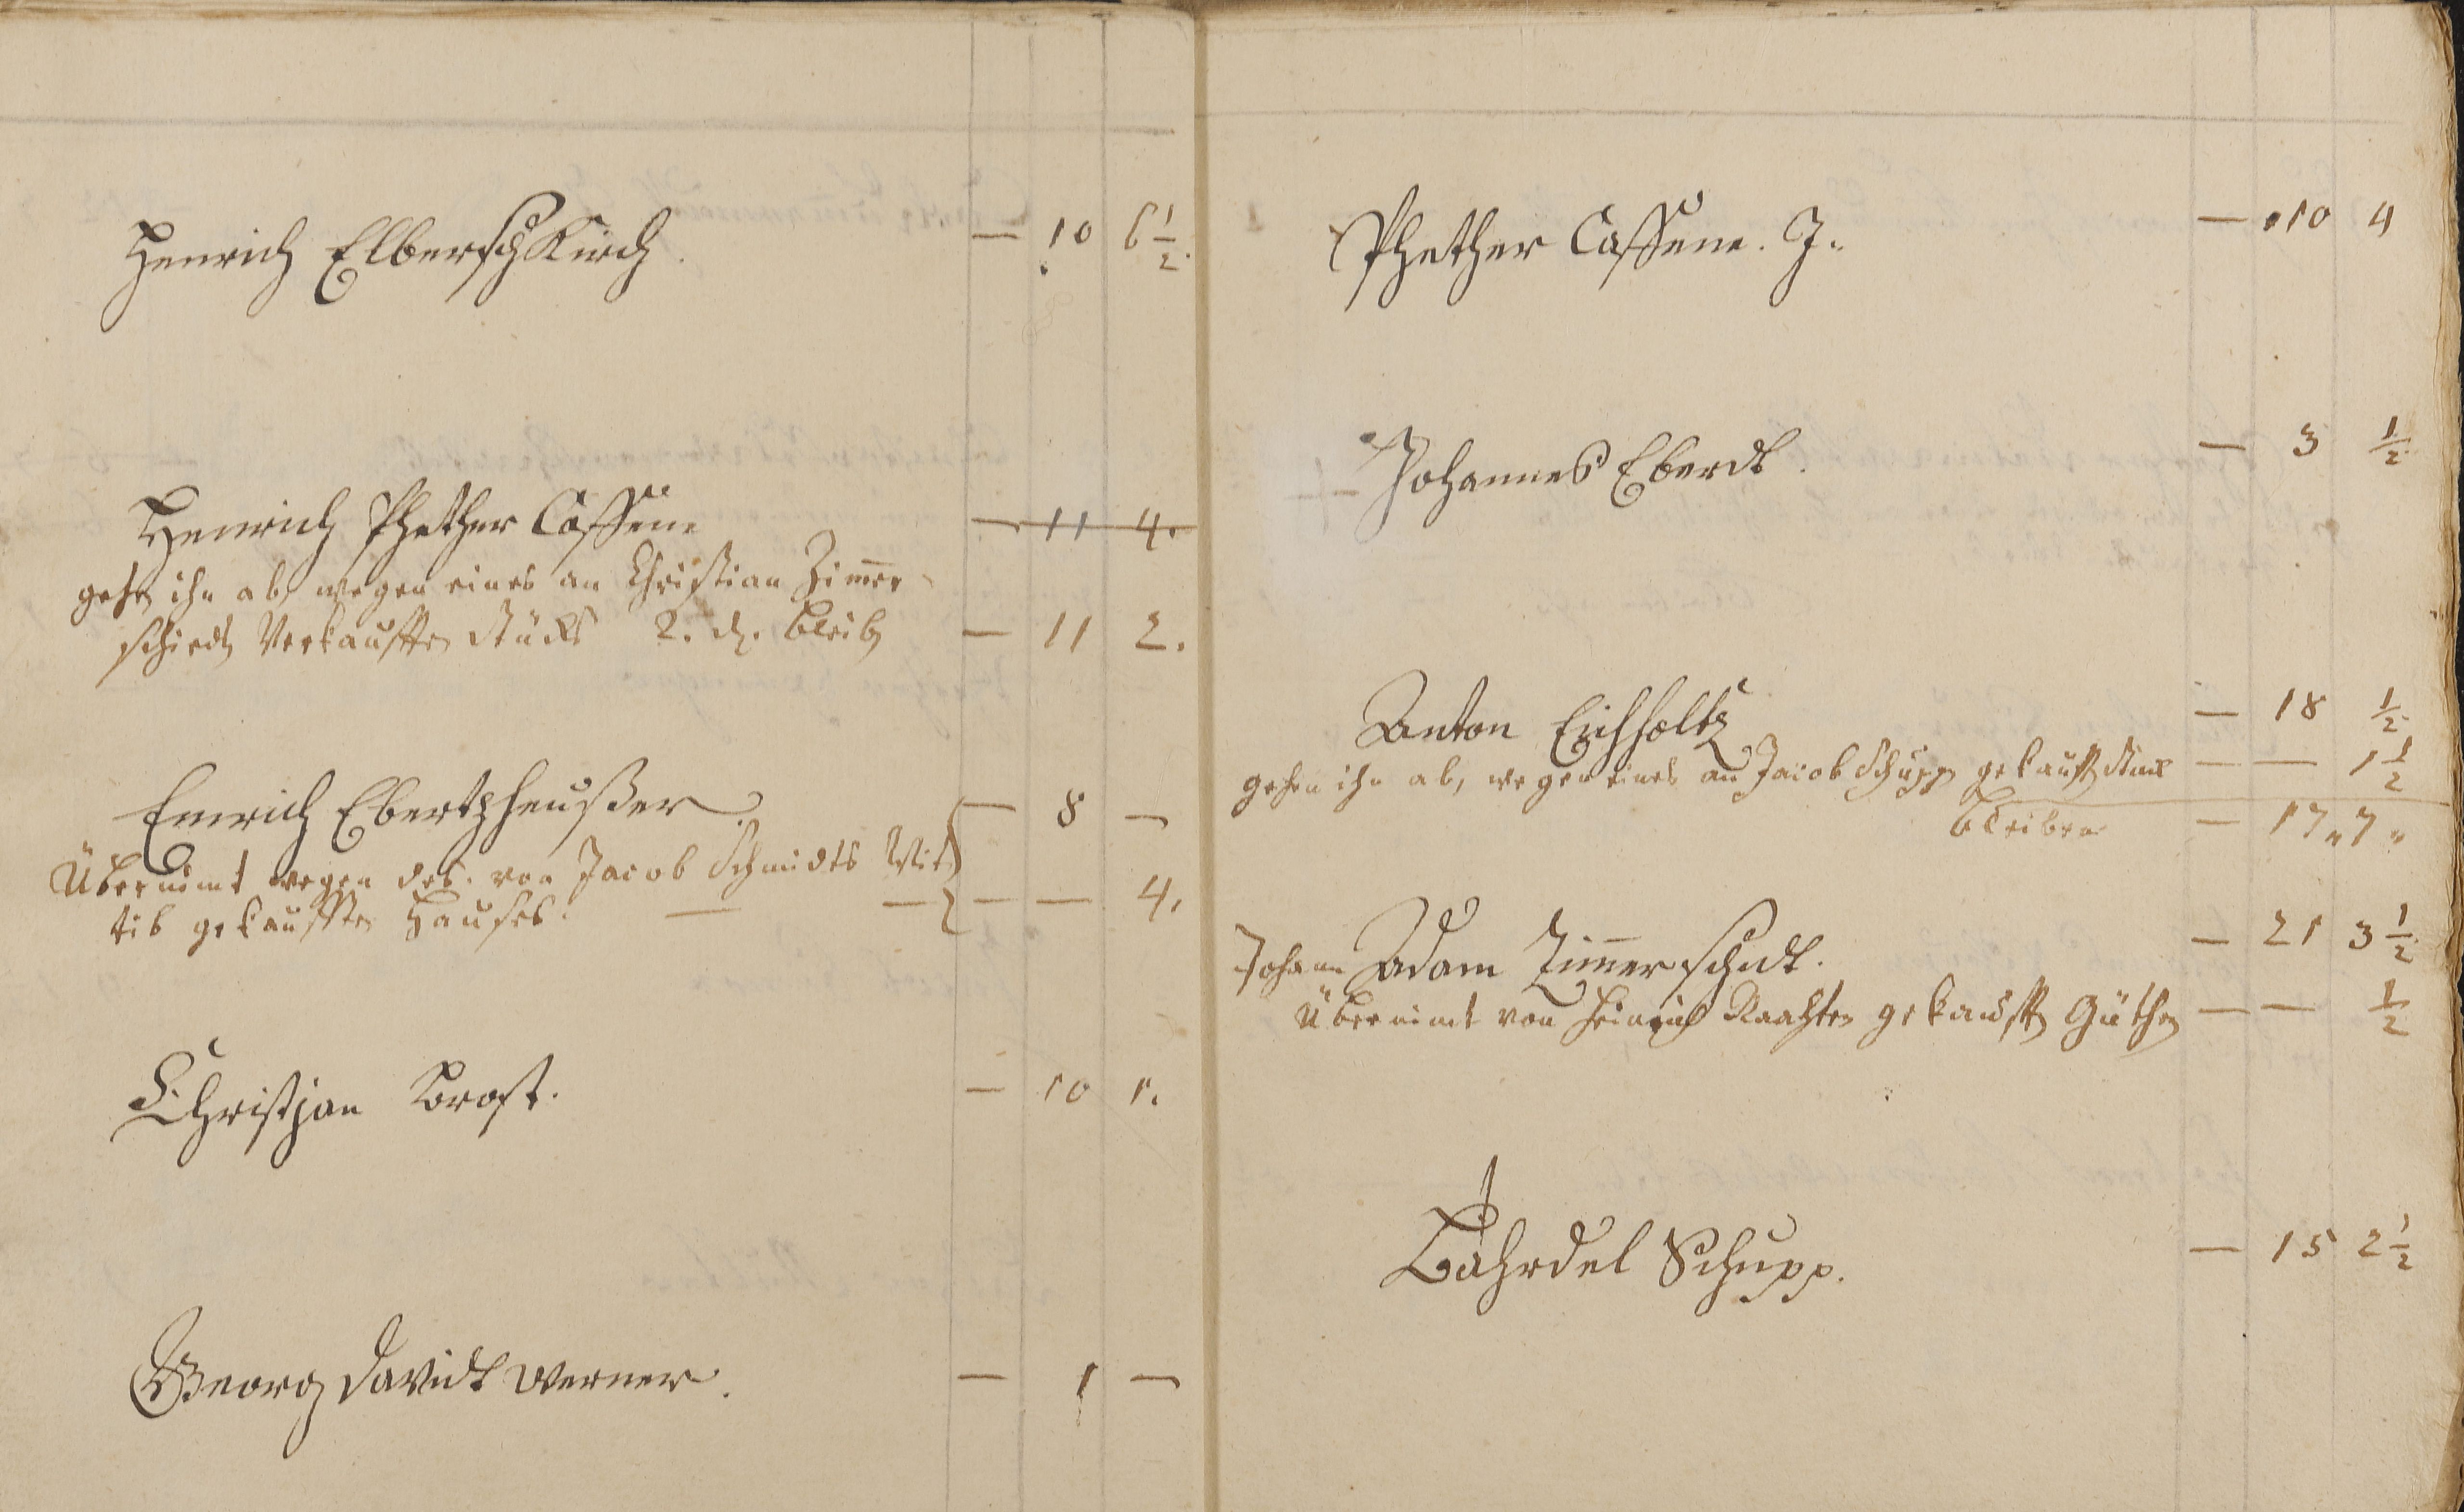 Henrich Elberschkirch. — 10 6 1/2.
Henrich Phether Cassene — 11 4.
gehen ihn ab, wegen eines an Christian Zimer-
schiedt Verkaufften Stücks 2. d. bleib — 11 2.
Emrich Ebertzheußer — 8 —
Übernimt wegen des von Jacob Schmidts Wit
tib gekaufften Hauses. — — — — 4.
Christjan Brost. — 10 1.
Georg Davidt Werner. — 1 —
Phether Cassene. J. — 10 4
Johannes Eberdt. — 3 1/2.
Anton Eichholtz — 18 1/2.
gehen ihn ab, wegen eines an Jacob Schupp gekauft Stück — — 1 1/2
bleiben — 17 " 7 "
Johann Adam Zimerschidt. — 21 3 1/2.
Übernimt von Heinrich gekaufft Güthen — — 1/2
Schupp. — 15 2 1/2